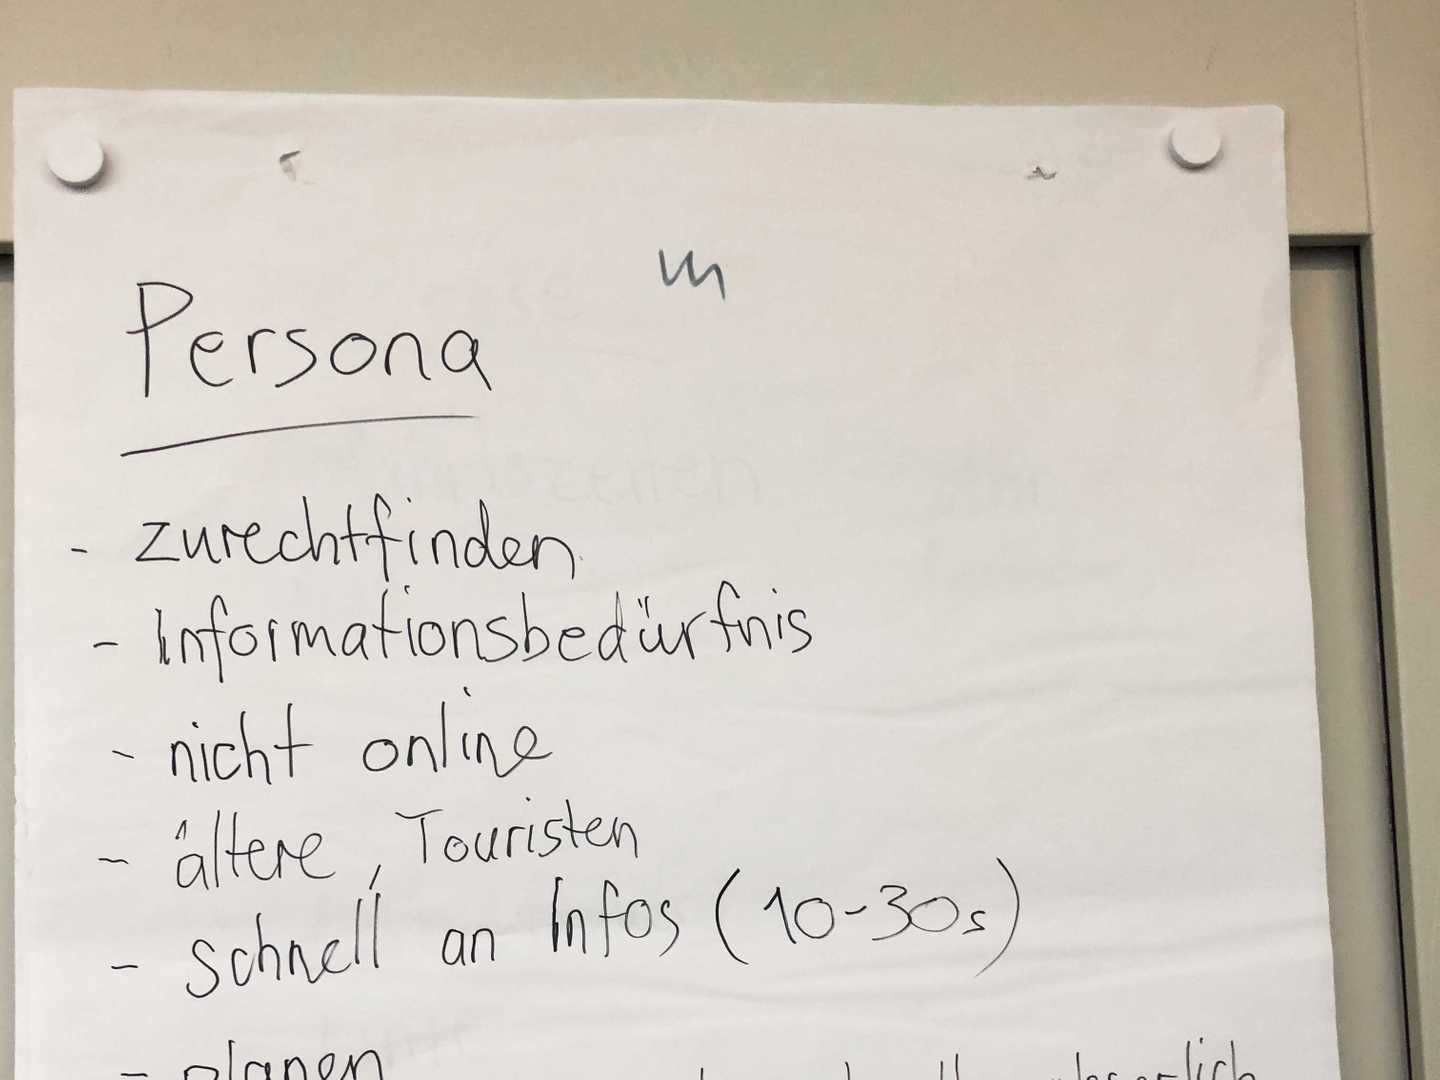 Persona
- zurechtfinden
- Informationsbedürfnis
- nicht online
- ältere, Touristen
- schnell an Infos (10-30s)
- planen